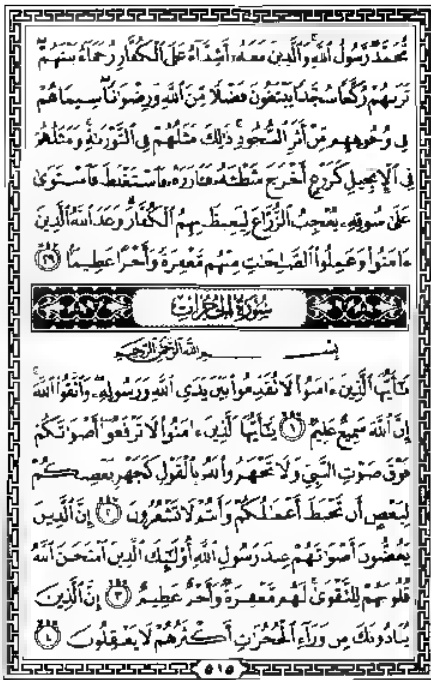 مُّحَمَّدٌ رَّسُولُ ٱللَّهِ وَٱلَّذِينَ مَعَهُۥٓ أَشِدَّآءُ عَلَى ٱلْكُفَّارِ رُحَمَآءُ بَيْنَهُمْ
تَرَىٰهُمْ رُكَّعًا سُجَّدًا يَبْتَغُونَ فَضْلًا مِّنَ ٱللَّهِ وَرِضْوَٰنًا سِيمَاهُمْ
فِى وُجُوهِهِم مِّنْ أَثَرِ ٱلسُّجُودِ ذَٰلِكَ مَثَلُهُمْ فِى ٱلتَّوْرَىٰةِ وَمَثَلُهُمْ
فِى ٱلْإِنجِيلِ كَزَرْعٍ أَخْرَجَ شَطْـَٔهُۥ فَـَٔازَرَهُۥ فَٱسْتَغْلَظَ فَٱسْتَوَىٰ
عَلَىٰ سُوقِهِۦ يُعْجِبُ ٱلزُّرَّاعَ لِيَغِيظَ بِهِمُ ٱلْكُفَّارَ وَعَدَ ٱللَّهُ ٱلَّذِينَ
ءَامَنُوا۟ وَعَمِلُوا۟ ٱلصَّٰلِحَٰتِ مِنْهُم مَّغْفِرَةً وَأَجْرًا عَظِيمًۢا ٢٩
سُورَةُ الحُجُرَاتِ
بِسْمِ ٱللَّهِ ٱلرَّحْمَٰنِ ٱلرَّحِيمِ
يَٰٓأَيُّهَا ٱلَّذِينَ ءَامَنُوا۟ لَا تُقَدِّمُوا۟ بَيْنَ يَدَىِ ٱللَّهِ وَرَسُولِهِۦ وَٱتَّقُوا۟ ٱللَّهَ
إِنَّ ٱللَّهَ سَمِيعٌ عَلِيمٌ ١ يَٰٓأَيُّهَا ٱلَّذِينَ ءَامَنُوا۟ لَا تَرْفَعُوٓا۟ أَصْوَٰتَكُمْ
فَوْقَ صَوْتِ ٱلنَّبِىِّ وَلَا تَجْهَرُوا۟ لَهُۥ بِٱلْقَوْلِ كَجَهْرِ بَعْضِكُمْ
لِبَعْضٍ أَن تَحْبَطَ أَعْمَٰلُكُمْ وَأَنتُمْ لَا تَشْعُرُونَ ٢ إِنَّ ٱلَّذِينَ
يَغُضُّونَ أَصْوَٰتَهُمْ عِندَ رَسُولِ ٱللَّهِ أُو۟لَٰٓئِكَ ٱلَّذِينَ ٱمْتَحَنَ ٱللَّهُ
قُلُوبَهُمْ لِلتَّقْوَىٰ لَهُم مَّغْفِرَةٌ وَأَجْرٌ عَظِيمٌ ٣ إِنَّ ٱلَّذِينَ
يُنَادُونَكَ مِن وَرَآءِ ٱلْحُجُرَٰتِ أَكْثَرُهُمْ لَا يَعْقِلُونَ ٤
٥١٥